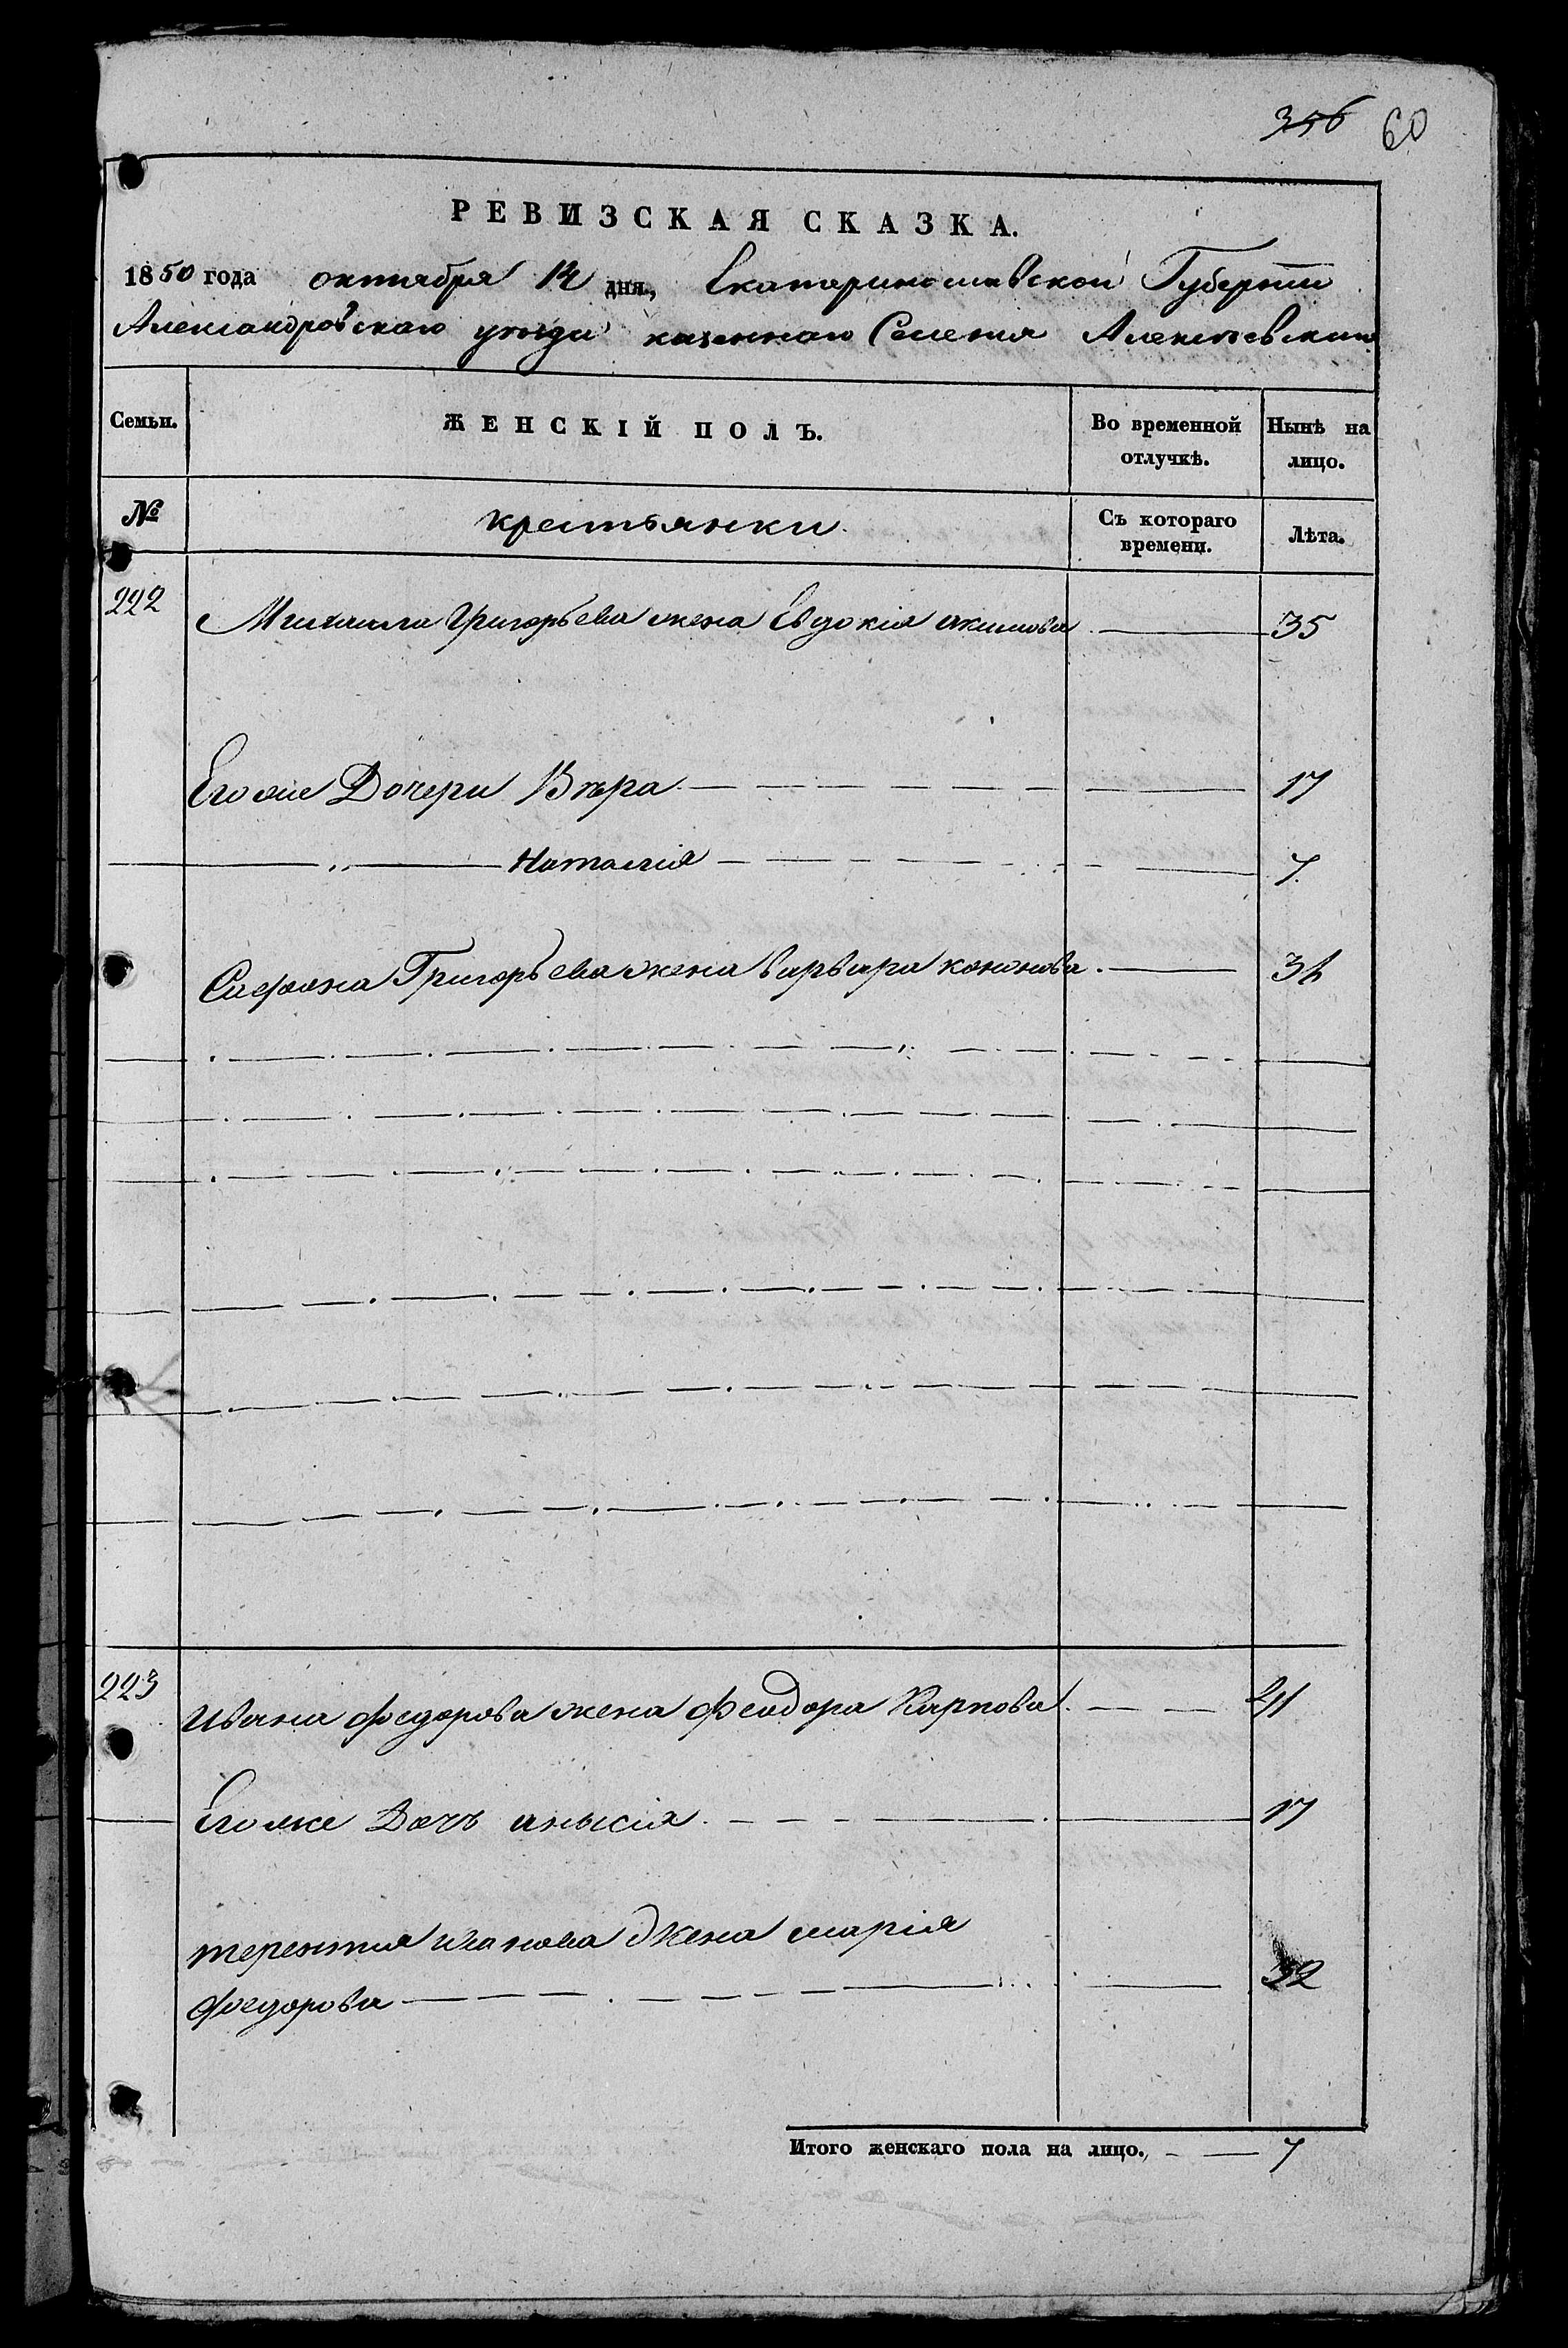 356 60
РЕВИЗСКАЯ СКАЗКА.
1850 года октября 12 дня, Екатеринославской Губернiи
Александровскаго уѣзда казеннаго Селенiя Алексѣевскаго
Семьи. ЖЕНСКІЙ ПОЛЪ. Во временной отлучкѣ. Нынѣ на лицо.
№ крестьянки Съ котораго времени. Лѣта.
222 Михаила Григорьева жена Евдокiя акимова — 35
Его же Дочери Вѣра — 17
— „ — Наталiя — 7
Григорьева жена варвара кононова — 34
223 Ивана федорова жена феодора Карпова — 41
Его же Дочь анисiя — 17
терентия иванова жена марiя
федорова — 32
Итого женскаго пола на лицо. — 7